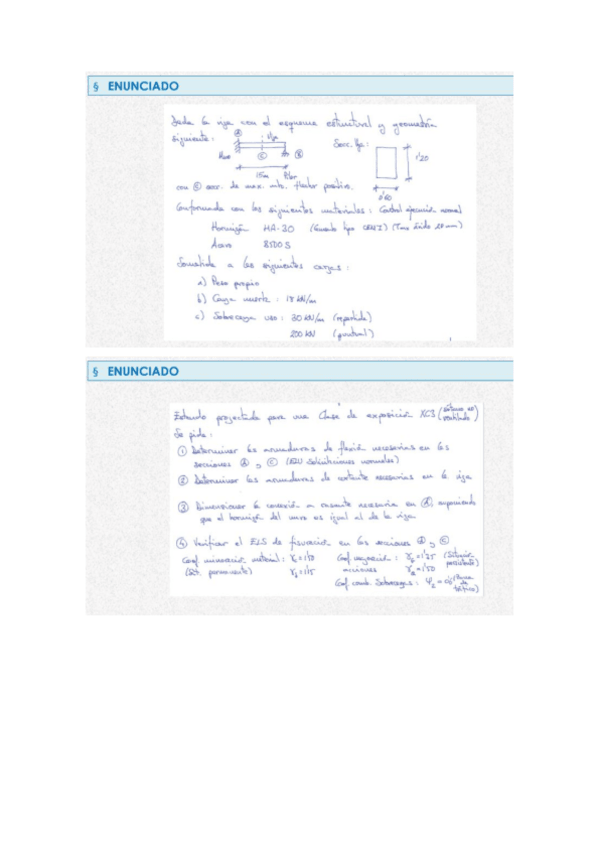 § ENUNCIADO
Dada la viga con el esquema estructural y geometría
siguiente: Secc. fija:
A viga
Muro C B 1'20
15m Pilar
con C secc. de max. mto. flector positivo. 0'60
Conformada con los siguientes materiales: Control ejecución normal
Hormigón HA-30 (Cemento tipo CEM I) (Tmax árido 20 mm)
Acero B500S
Sometida a las siguientes cargas:
a) Peso propio
b) Carga muerta: kN/m
c) Sobrecarga uso: 30 kN/m (repartida)
200 kN (puntual)
§ ENUNCIADO
Estando proyectada para una Clase de exposición XC3
Se pide:
① Determinar las armaduras de flexión necesarias en las
secciones A y C (ELU Solicitaciones normales)
② Determinar las armaduras de cortante necesarias en la viga
③ Dimensionar la conexión a rasante necesaria en A, suponiendo
que el hormigón del muro es igual al de la viga.
④ Verificar el ELS de fisuración en las secciones A y C
Coef. minoración material: γc = 1'50 Coef. mayoración: γG = 1'35 (Situación
(Sit. permanente) γs = 1'15 acciones γQ = 1'50 persistente)
Coef. comb. Sobrecargas: Ψ2 =